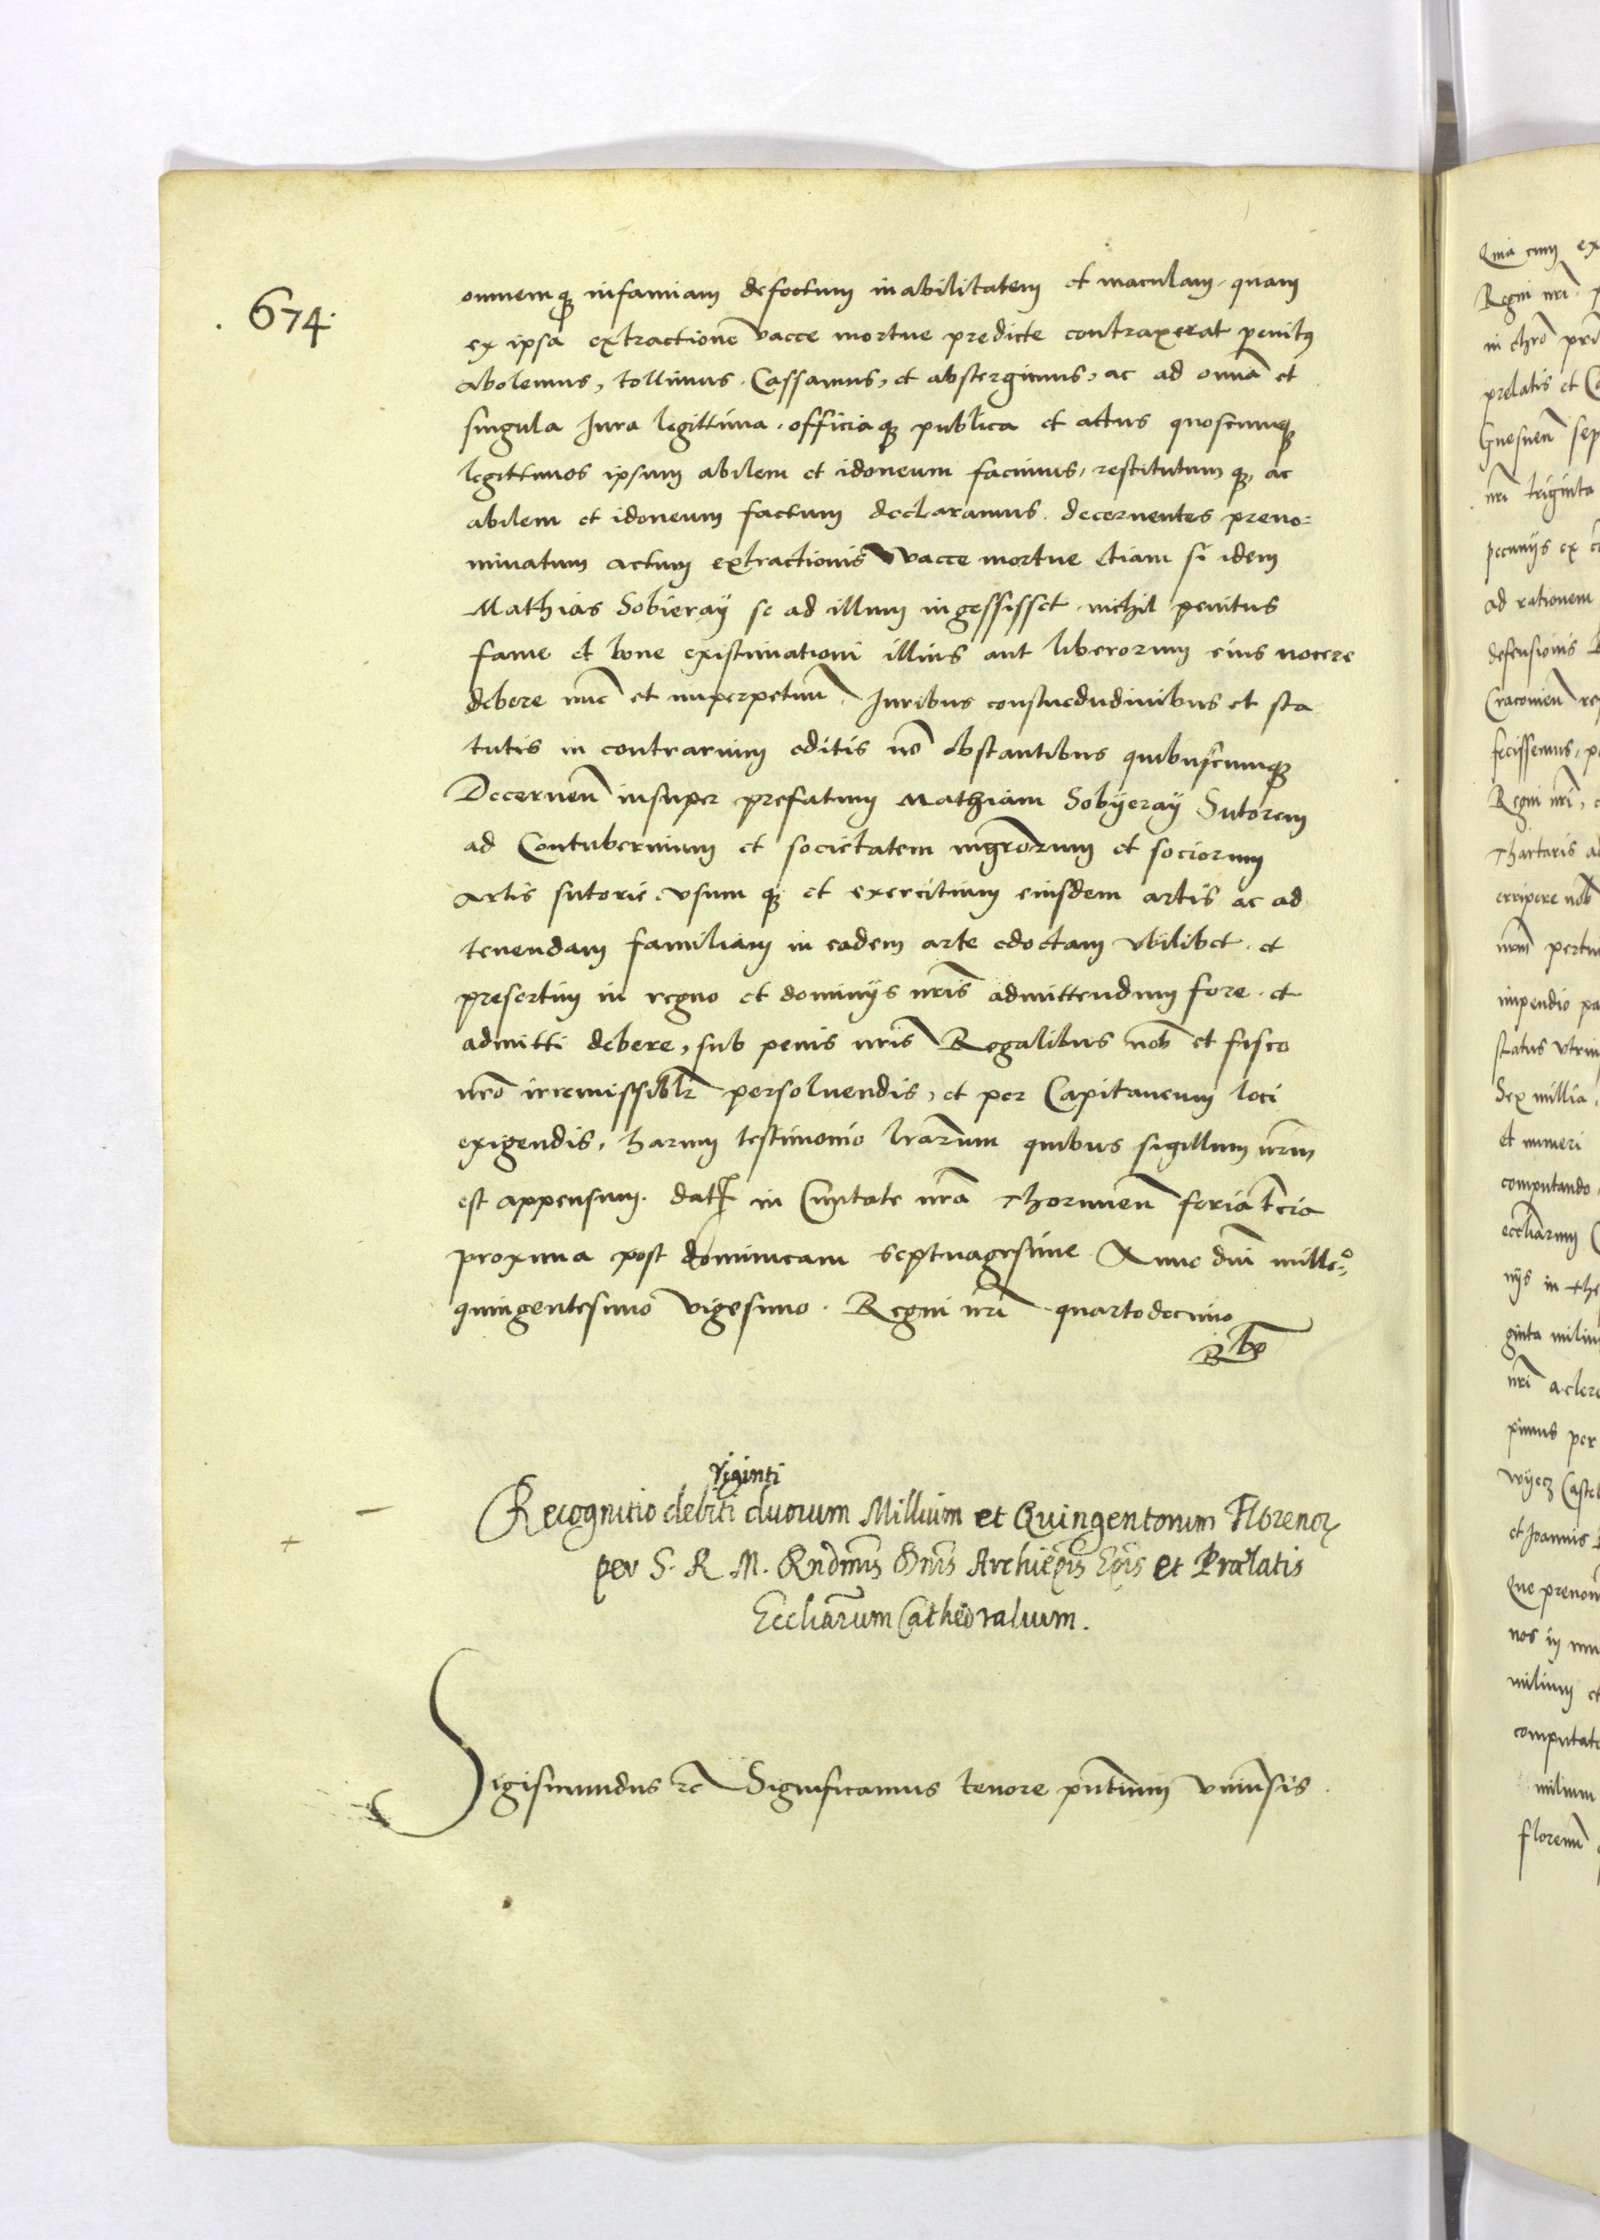 . 674.
omnemq̨ infamiam defectum inabilitatem et maculam, quam
ex ipsa extractione vacce mortue predicte contraxerat penitus
abolemus, tollimus, Cassamus, et abstergimus, ac ad omnia et
singula Jura legittima, officiaq̨ publica et actus quoscumq̨
legittimos ipsum abilem et idoneum facimus, restitutumq̨, ac
abilem et idoneum factum declaramus. decernentes preno-
minatum actum extractionis vacce mortue etiam si idem
Mathias Sobieraÿ se ad illum ingessisset nichil penitus
fame et bone existimationi illius aut liberorum eius nocere
debere nūc et inperpetuū. Juribus consuedudinibus et sta
tutis in contrarium editis nō obstantibus quibuscumq̨
Decernen̄ insuper prefatum Mathiam Sobÿeraÿ Sutorem
ad Contubernium et societatem mgr̄orum et sociorum
artis sutorie, vsumq̨ et exercitium eiusdem artis ac ad
tenendam familiam in eadem arte edoctam vbilibet, et
presertim in regno et dominijs nr̄is admittendum fore, et
admitti debere, sub penis nr̄is Regalibus nob̄ et fisco
nr̄o irremissiblr̄ persoluendis, et per Capitaneum loci
exigendis, harum testimonio lr̄arum quibus sigillum nr̄m
est appensum. dat in Ciuitate nr̄a Thorunien̄ feria tēia
proxima post dominicam septuagesime Anno dn̄i mille-º
quingentesimo vigesimo. Regni nr̄i quartodecimo
Viginti
Recognitio debiti duorum Millium et Quingentorum Florenor
per S. R. M. Rndm̄is Dn̄is Archiep̄is Ep̄is et Prælatis
Eccliārum Cathedralium.
Sigismundus rc̄ Significamus tenore pn̄tium vniūsis.
Quia cum ex
Regni nr̄i
in chr̄o
prelatis et
Gnesnen̄ sep
nr̄i triginta
pecunijs ex
ad rationem
defensionis
Cracouien̄
fecissemus,
Regni nr̄i,
Thartaris
erripere nob̄
nr̄m
impendio
status
Sex millia
et numeri
computando
eccl̄iarum
nijs in
ginta
nr̄i a clero
per
Castel
et Joannis
Que
nos in
milium et
computat
milium
floren̄